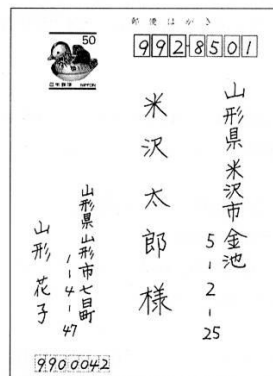 郵便はがき
50
日本郵便 NIPPON
9928501
山形県米沢市金池
5-2-25
米沢太郎様
山形県山形市七日町
1-4-47
山形花子
9900042